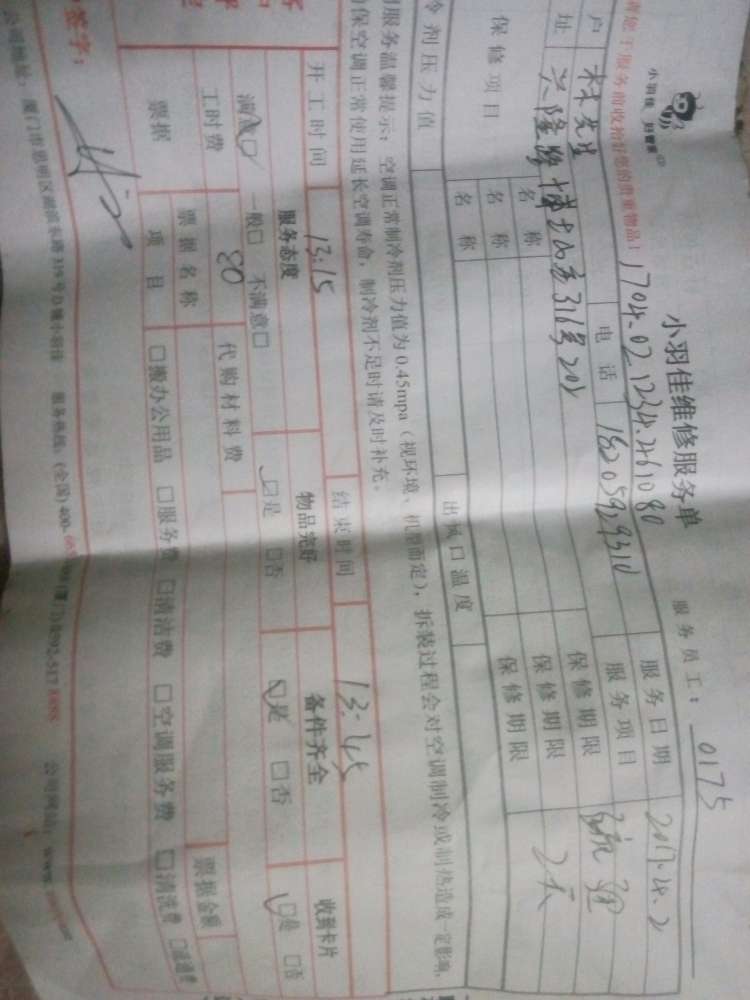 小羽佳维修服务单
服务员工：0175
小羽佳 好管家
1704.021234.261080
请您于服务前收拾好您的贵重物品！
户 林先生 电话 18205929310 服务日期 2017.4.2
址 兴隆路 316号20 服务项目 疏通
保修项目
名称 保修期限
名称 保修期限 2天
名称 保修期限
冷剂压力值 出风口温度
服务温馨提示：空调正常制冷剂压力值为0.45mpa（视环境、机型而定），拆装过程会对空调制冷或制热造成一定影响，
保空调正常使用延长空调寿命，制冷剂不足时请及时补充。
开工时间 13:15 结束时间 13:45
服务态度 物品完好 备件齐全 收到卡片
满意□ 一般□ 不满意□ □是 □否 □是 □否 □是 □否
工时费 80 代购材料费
票据 票据名称 票据金额
项目 □搬办公用品 □服务费 □清洁费 □空调服务费 □清洗费 □疏通费
签字：
公司地址：厦门市思明区 小羽佳 服务热线：(全国)400- (厦门)0592-517 公司网站：www.